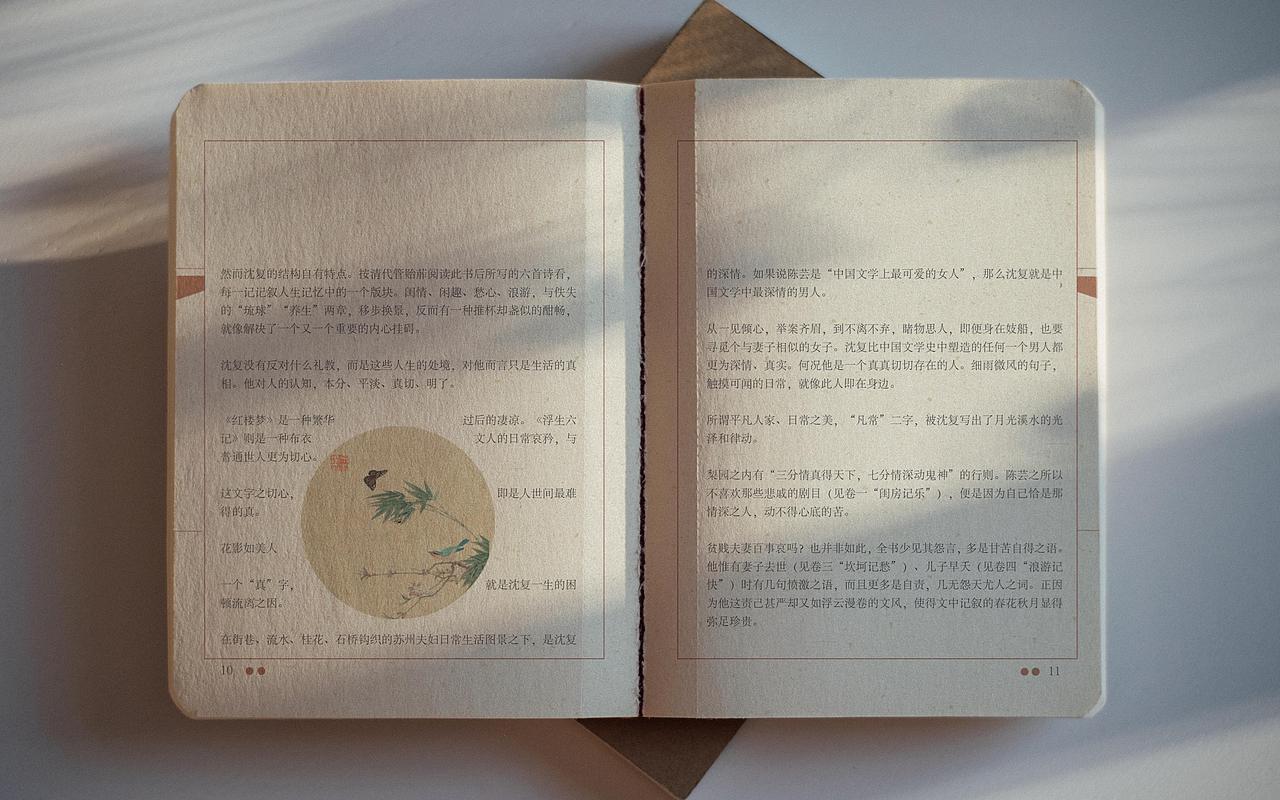 然而沈复的结构自有特点。按清代管贻葄阅读此书后所写的六首诗看，
每一记记叙人生记忆中的一个版块。闺情、闲趣、愁心、浪游，与佚失
的“琉球”“养生”两章，移步换景，反而有一种推杯却盏似的酣畅，
就像解决了一个又一个重要的内心挂碍。
沈复没有反对什么礼教，而是这些人生的处境，对他而言只是生活的真
相。他对人的认知，本分、平淡、真切、明了。
《红楼梦》是一种繁华过后的凄凉。《浮生六
记》则是一种布衣文人的日常哀矜，与
普通世人更为切心。
这文字之切心，即是人世间最难
得的真。
花影如美人
一个“真”字，就是沈复一生的困
顿流离之因。
在街巷、流水、桂花、石桥钩织的苏州夫妇日常生活图景之下，是沈复
10
的深情。如果说陈芸是“中国文学上最可爱的女人”，那么沈复就是中
国文学中最深情的男人。
从一见倾心，举案齐眉，到不离不弃，睹物思人，即便身在妓船，也要
寻觅个与妻子相似的女子。沈复比中国文学史中塑造的任何一个男人都
更为深情、真实。何况他是一个真真切切存在的人。细雨微风的句子，
触摸可闻的日常，就像此人即在身边。
所谓平凡人家、日常之美，“凡常”二字，被沈复写出了月光溪水的光
泽和律动。
梨园之内有“三分情真得天下，七分情深动鬼神”的行则。陈芸之所以
不喜欢那些悲戚的剧目（见卷一“闺房记乐”），便是因为自己恰是那
情深之人，动不得心底的苦。
贫贱夫妻百事哀吗？也并非如此，全书少见其怨言，多是甘苦自得之语。
他惟有妻子去世（见卷三“坎坷记愁”）、儿子早夭（见卷四“浪游记
快”）时有几句愤激之语，而且更多是自责，几无怨天尤人之词。正因
为他这责己甚严却又如浮云漫卷的文风，使得文中记叙的春花秋月显得
弥足珍贵。
11